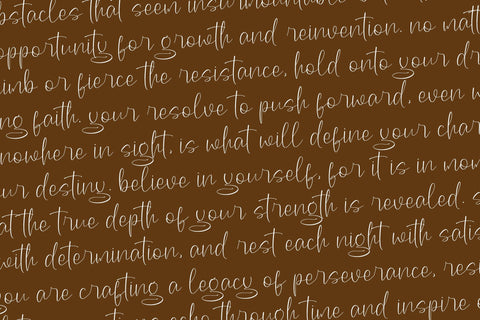 obstacles that seem insurmountable
opportunity for growth and reinvention. no matt
imb or fierce the resistance, hold onto your dr
ng faith. your resolve to push forward, even w
nowhere in sight, is what will define your char
ur destiny. believe in yourself, for it is in mom
at the true depth of your strength is revealed. s
with determination, and rest each night with satis
you are crafting a legacy of perseverance, resi
echo through time and inspire